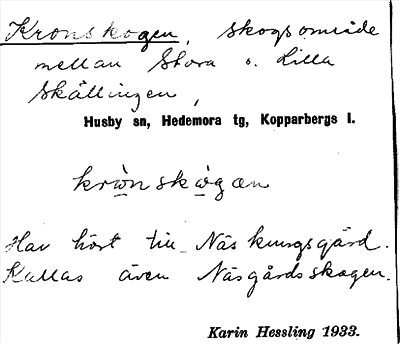 Kronskogen, skogsområde
mellan Stora o. Lilla
Skällingen,
Husby sn, Hedemora tg, Kopparbergs l.
krònskògæn
Har hört till Näs kungsgård.
Kallas även Näsgårdsskogen.
Karin Hessling 1933.